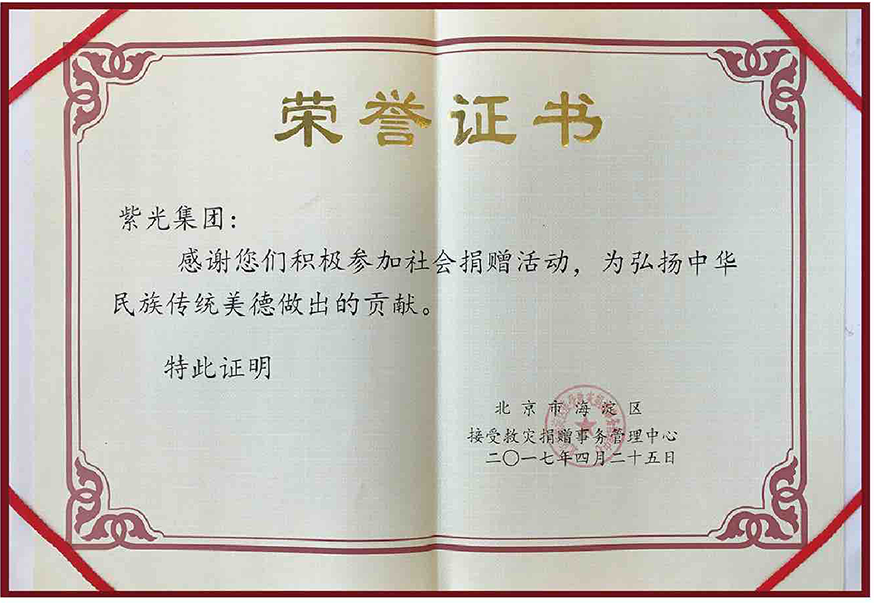 荣誉证书
紫光集团：
感谢您们积极参加社会捐赠活动，为弘扬中华
民族传统美德做出的贡献。
特此证明
北京市海淀区
接受救灾捐赠事务管理中心
二〇一七年四月二十五日